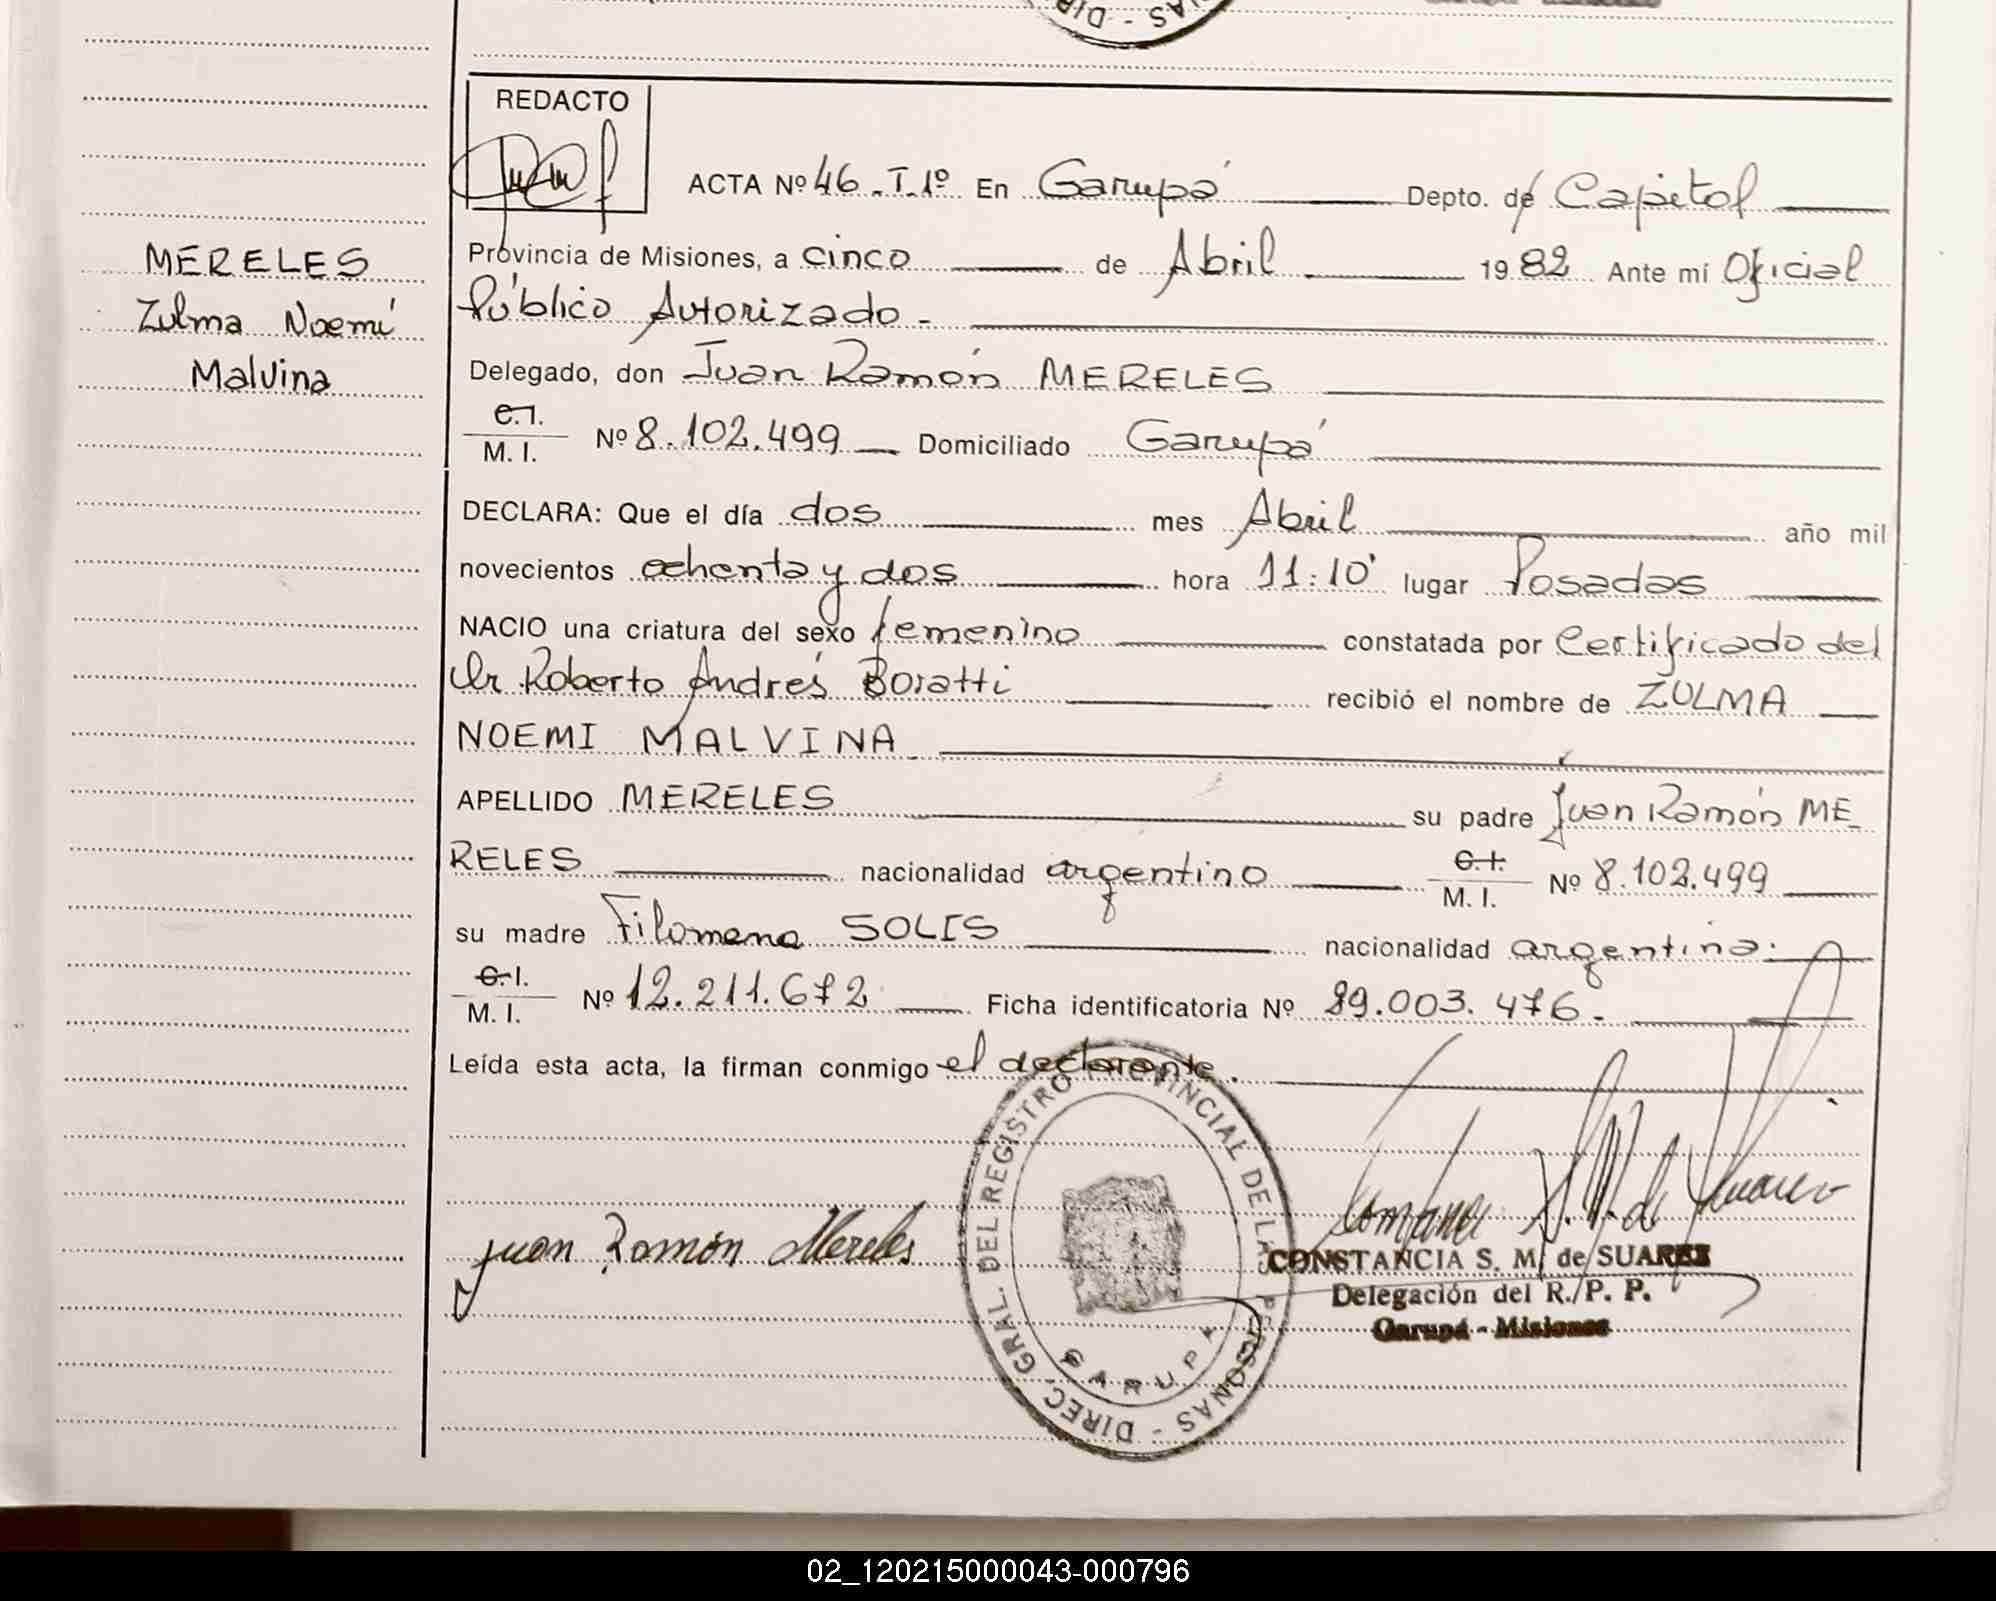 REDACTO
ACTA Nº 46 - T. 1º En Garupá Depto. de Capital
MERELES
Zulma Noemí
Malvina
Provincia de Misiones, a cinco de Abril 1982 Ante mí Oficial
Público Autorizado -
Delegado, don Juan Ramón MERELES
C.I.
M. I. Nº 8.102.499 Domiciliado Garupá
DECLARA: Que el día dos mes Abril año mil
novecientos ochenta y dos hora 11:10' lugar Posadas
NACIO una criatura del sexo femenino constatada por Certificado del
Dr Roberto Andrés Boratti recibió el nombre de ZULMA
NOEMI MALVINA
APELLIDO MERELES su padre Juan Ramón ME
RELES nacionalidad argentino C.I. M. I. Nº 8.102.499
su madre Filomena SOLIS nacionalidad argentina.
C.I.
M. I. Nº 12.211.672 Ficha identificatoria Nº 89.003.476.-
Leída esta acta, la firman conmigo el declarante.
Juan Ramón Mereles
DIREC. GRAL. DEL REGISTRO PROVINCIAL DE LAS PERSONAS -
GARUPA
Constancia S. M. de Suarez
CONSTANCIA S. M. de SUAREZ
Delegación del R. P. P.
Garupá - Misiones
02_120215000043-000796